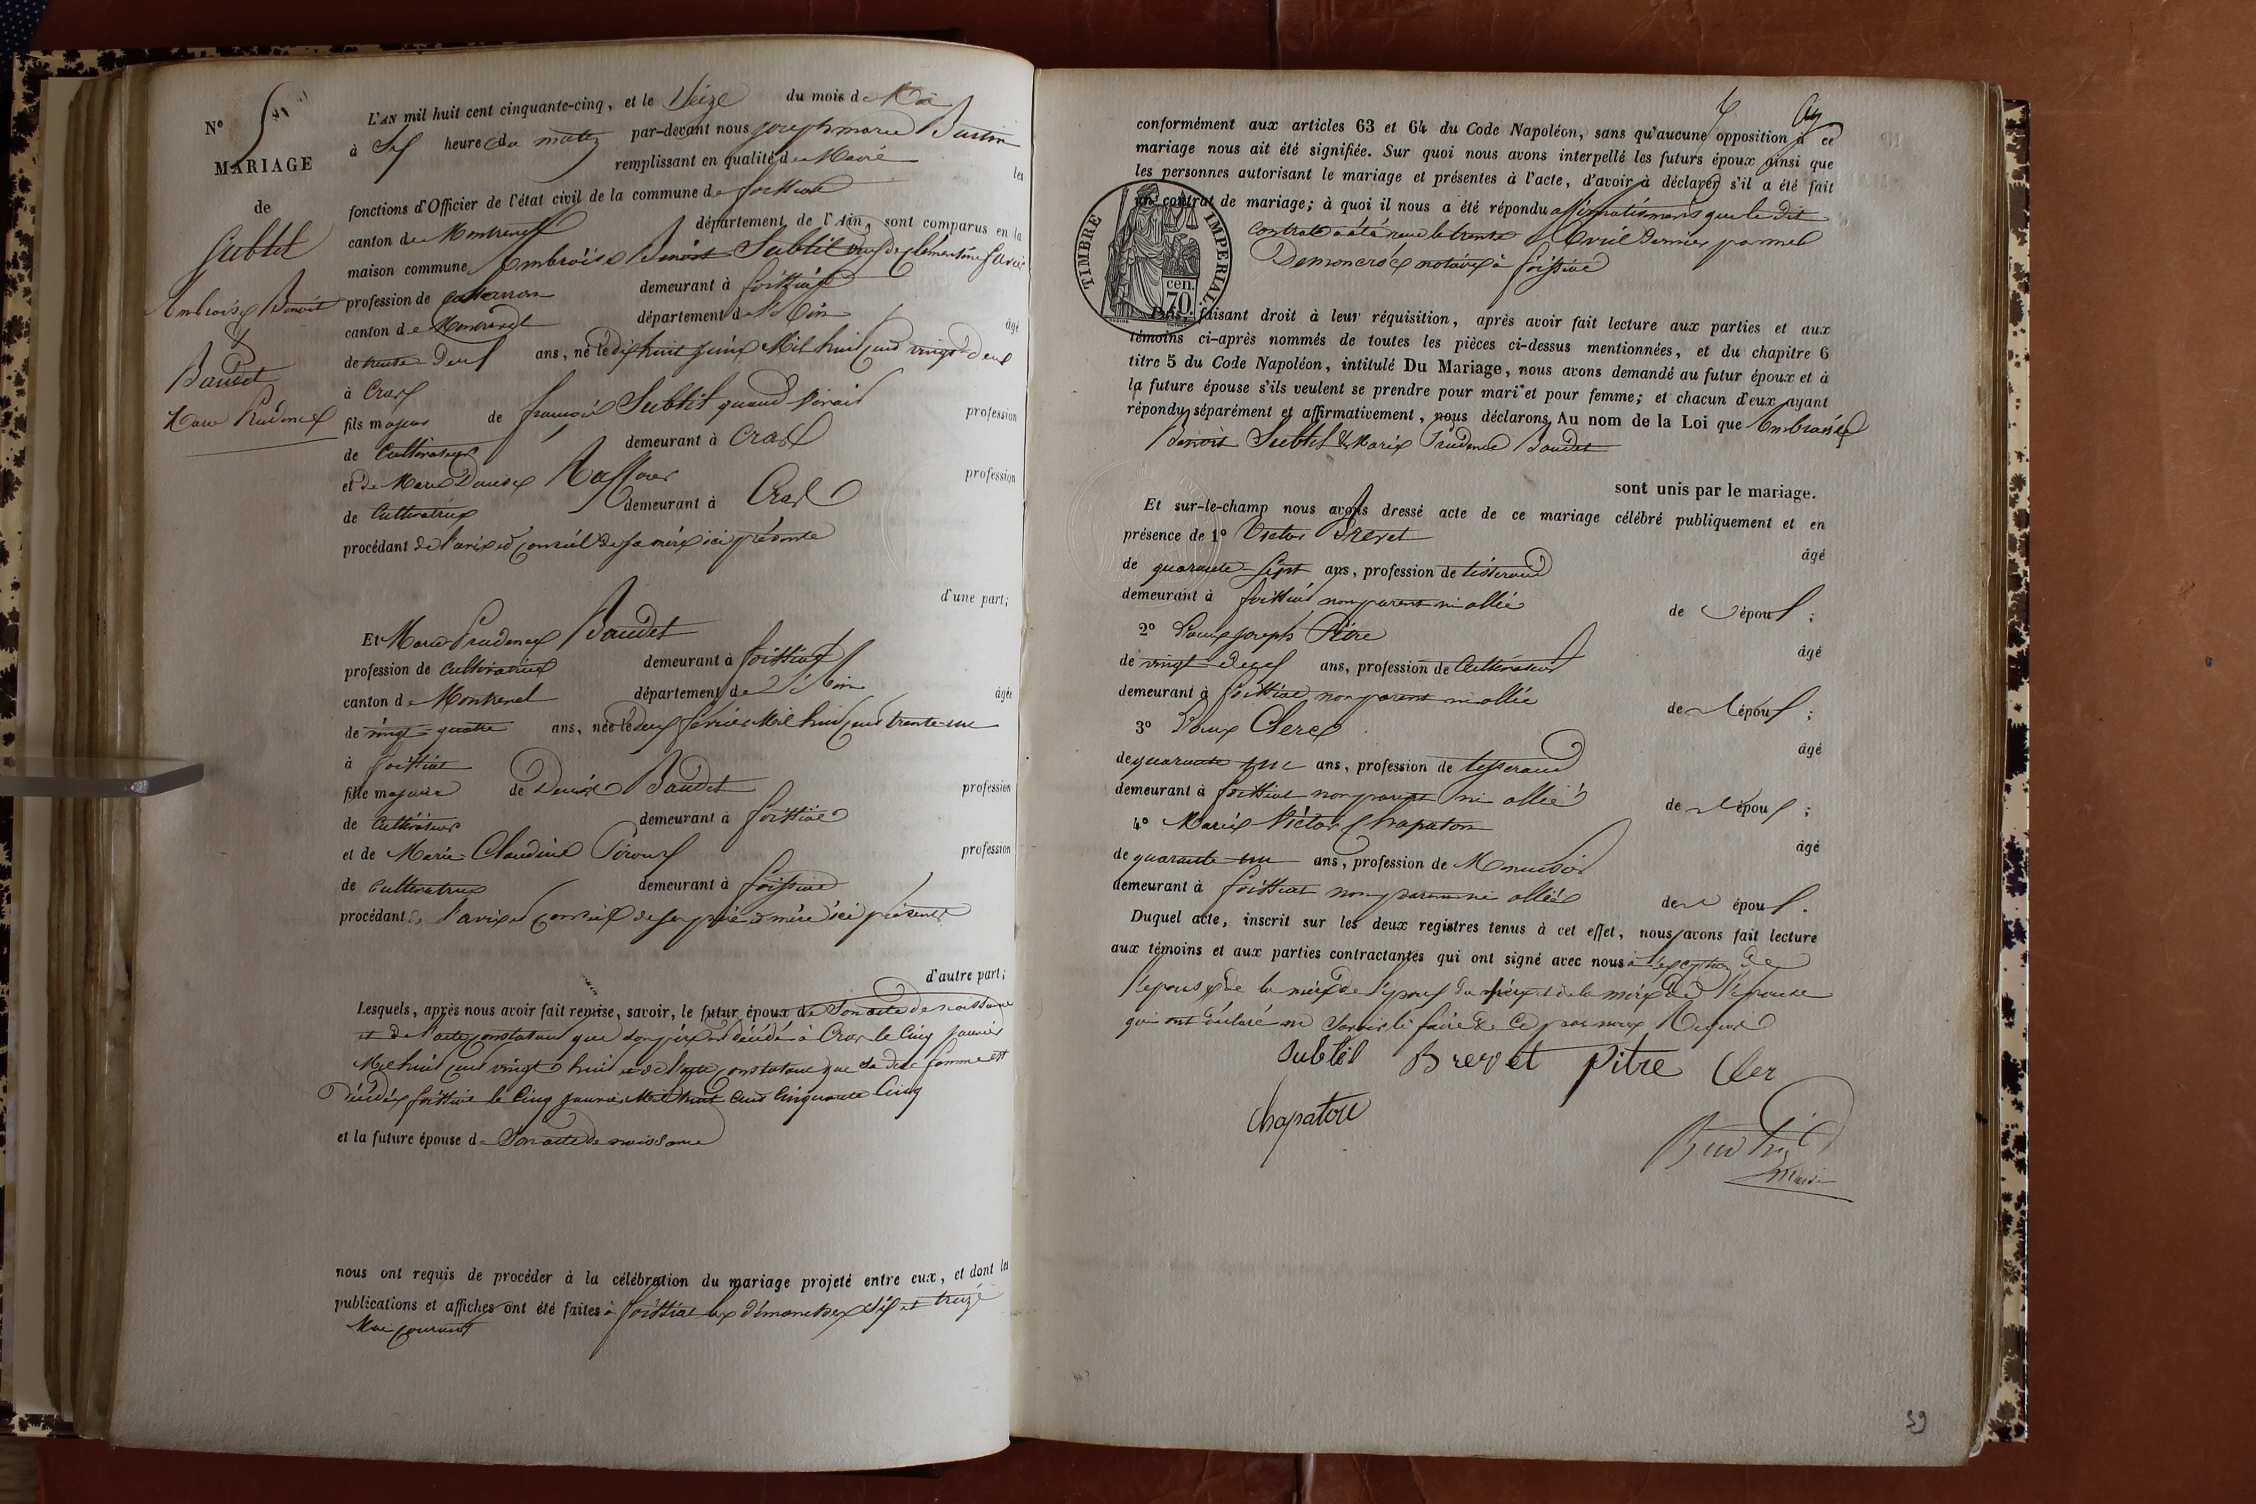 N° 5
MARIAGE
de
Subtil
Ambroise Benoit
&
Baudet
Marie Prudence
L'AN mil huit cent cinquante-cinq, et le du mois de Mai
à heure du matin par-devant nous joseph marie
remplissant en qualité de Maire les
fonctions d'Officier de l'état civil de la commune de foissiat
canton de Montrevel département de l'Ain, sont comparus en la
maison commune Ambroise Benoit Subtil veuf de clémentine
profession de demeurant à foissiat
canton de Montrevel département de l'Ain âgé
de trente deux ans, né le dix huit juin Mil huit cent vingt deux
à Cras
fils majeur de françois Subtil quand vivait profession
de Cultivateur demeurant à Cras
et de Marie Louise profession
de Cultivatrice demeurant à Cras
procédant de l'avis et conseil de sa mère ici présente
d'une part;
Et Marie Prudence Baudet
profession de Cultivatrice demeurant à foissiat
canton de Montrevel département de l'Ain âgée
de vingt-quatre ans, née le deux février Mil huit cent trente-un
à foissiat
fille majeure de Denis Baudet profession
de Cultivateur demeurant à foissiat
et de Marie-Claudine Piroux profession
de Cultivatrice demeurant à foissiat
procédant de l'avis et conseil de ses père et mère ici présents
d'autre part;
Lesquels, après nous avoir fait remise, savoir, le futur époux de Son acte de naissance
et de l'acte constatant que son père est décédé à Cras le Cinq janvier
Mil huit cent vingt huit et de l'acte constatant que sa dite femme est
Décédée foissiat le Cinq janvier Mil huit Cent Cinquante Cinq
et la future épouse de Son acte de naissance
nous ont requis de procéder à la célébration du mariage projeté entre eux, et dont les
publications et affiches ont été faites à foissiat les dimanches six et treize
Mai courant
conformément aux articles 63 et 64 du Code Napoléon, sans qu'aucune opposition à ce
mariage nous ait été signifiée. Sur quoi nous avons interpellé les futurs époux ainsi que
les personnes autorisant le mariage et présentes à l'acte, d'avoir à déclarer s'il a été fait
un contrat de mariage; à quoi il nous a été répondu affirmativement que le dit
contrat a été reçu le trente Avril dernier par me
notaire à foissiat
TIMBRE IMPERIAL.
cen.
70
faisant droit à leur réquisition, après avoir fait lecture aux parties et aux
témoins ci-après nommés de toutes les pièces ci-dessus mentionnées, et du chapitre 6
titre 5 du Code Napoléon, intitulé Du Mariage, nous avons demandé au futur époux et à
la future épouse s'ils veulent se prendre pour mari et pour femme; et chacun d'eux ayant
répondu séparément et affirmativement, nous déclarons Au nom de la Loi que Ambroise
Benoit Subtil & Marie Prudence Baudet
sont unis par le mariage.
Et sur-le-champ nous avons dressé acte de ce mariage célébré publiquement et en
présence de 1° Victor Brevet âgé
de quarante-sept ans, profession de tisserand
demeurant à foissiat non parent ni allié de l'époux;
2° Louis joseph Pitre âgé
de vingt-deux ans, profession de Cultivateur
demeurant à foissiat non parent ni allié de l'époux;
3° Louis Clerc âgé
de quarante un ans, profession de tisserand
demeurant à foissiat non parent ni allié de l'époux;
4° Marie Victor Chapaton âgé
de quarante-un ans, profession de Menuisier
demeurant à foissiat non parent ni allié de l'époux.
Duquel acte, inscrit sur les deux registres tenus à cet effet, nous avons fait lecture
aux témoins et aux parties contractantes qui ont signé avec nous à l'exception de
l'épouse de la mère de l'époux du père et de la mère de l'épouse
qui ont déclaré ne savoir le faire de ce par nous Requis
Subtil Brevet pitre Cler
Chapaton
maire
39